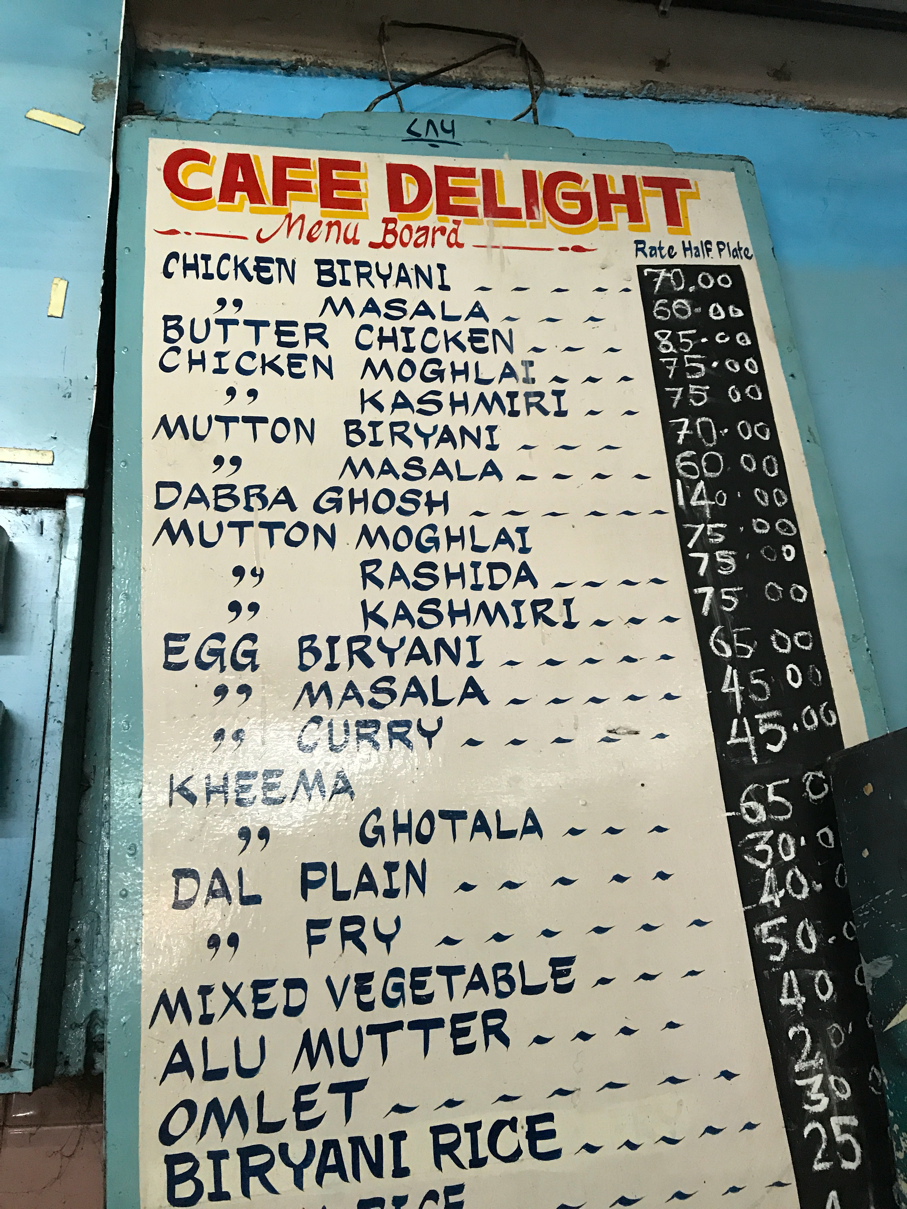 ۷۸۶
CAFE DELIGHT
Menu Board
Rate Half Plate
CHICKEN BIRYANI 70.00
,, MASALA 60.00
BUTTER CHICKEN 85.00
CHICKEN MOGHLAI 75.00
,, KASHMIRI 75 00
MUTTON BIRYANI 70.00
,, MASALA 60 00
DABBA GHOSH 140.00
MUTTON MOGHLAI 75.00
,, RASHIDA 75.00
,, KASHMIRI 75 00
EGG BIRYANI 65.00
,, MASALA 45 00
,, CURRY 45.00
KHEEMA 65 0
,, GHOTALA 30.0
DAL PLAIN 40.0
,, FRY 50.0
MIXED VEGETABLE 40 0
ALU MUTTER 20.
OMLET 30
BIRYANI RICE 25
RICE